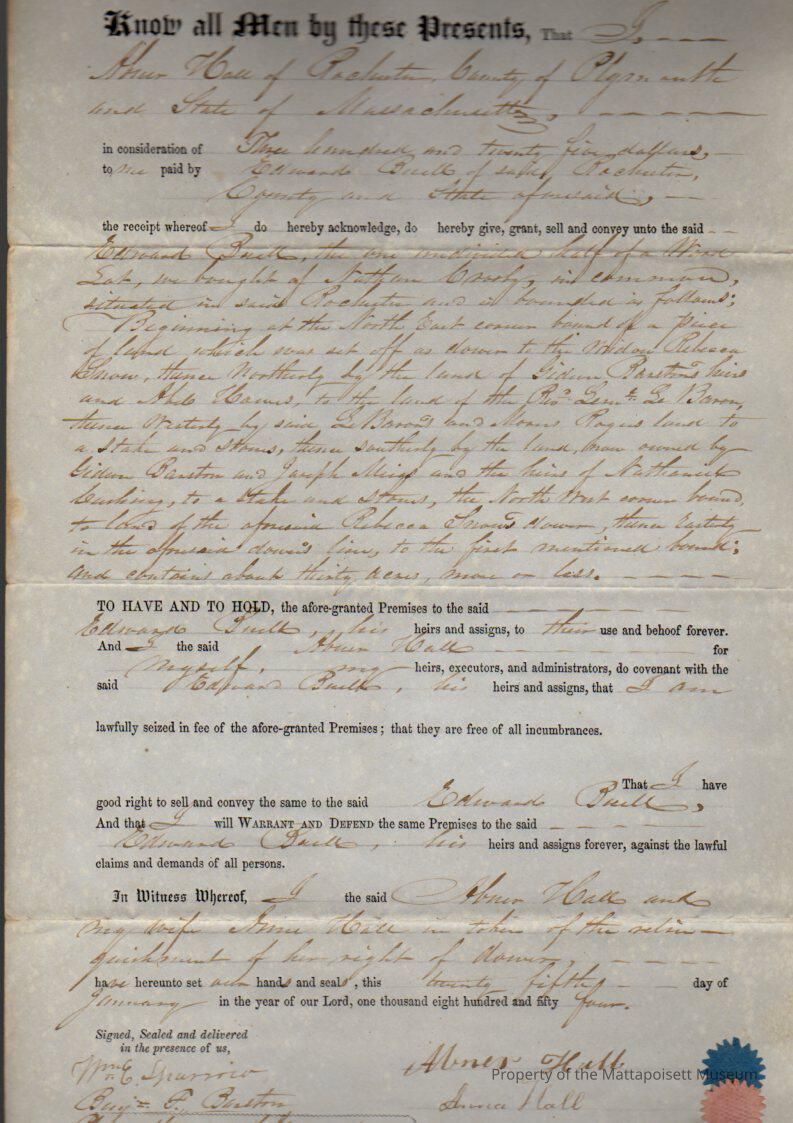 Know all Men by these Presents, That I,
Abner Hall of Rochester, County of Plymouth
and State of Massachusetts,
in consideration of Three hundred and twenty five dollars,
to me paid by Edward Buell of said Rochester,
County and State aforesaid,
the receipt whereof I do hereby acknowledge, do hereby give, grant, sell and convey unto the said
Edward Buell, the one undivided half of a Wood
Lot, we bought of Nathan Crosby, in common,
situated in said Rochester and is bounded as follows;
Beginning at the North East corner bound of a piece
of land which was set off as dower to the Widow Rebecca
Snow, thence Northerly by the land of Gideon Barstow's heirs
and Hawes, to the land of the Revd. Lemn. Le Baron,
thence Westerly by said LeBaron's and Moses Rogers land to
a Stake and Stones, thence southerly by the land, now owned by
Gideon Barstow and Joseph Meigs and the heirs of Nathaniel
Cushing, to a Stake and Stones, the North West corner bound,
to land of the aforesaid Rebecca Snow's dower, thence Easterly
in the aforesaid dower's line, to the first mentioned bound;
and contains about thirty acres, more or less.
TO HAVE AND TO HOLD, the afore-granted Premises to the said
Edward Buell, his heirs and assigns, to their use and behoof forever.
And I the said Abner Hall for
myself, my heirs, executors, and administrators, do covenant with the
said Edward Buell, his heirs and assigns, that I am
lawfully seized in fee of the afore-granted Premises; that they are free of all incumbrances.
That I have
good right to sell and convey the same to the said Edward Buell,
And that I will WARRANT AND DEFEND the same Premises to the said
Edward Buell, his heirs and assigns forever, against the lawful
claims and demands of all persons.
In Witness Whereof, I the said Abner Hall and
my wife Anna Hall in token of the relin-
quishment of her right of dower,
have hereunto set our hands and seals, this twenty fifth day of
January in the year of our Lord, one thousand eight hundred and fifty four.
Signed, Sealed and delivered
in the presence of us,
Wm. E. Sparrow
Abner Hall
Property of the Mattapoisett Museum
Benj. F. Barstow
Anna Hall